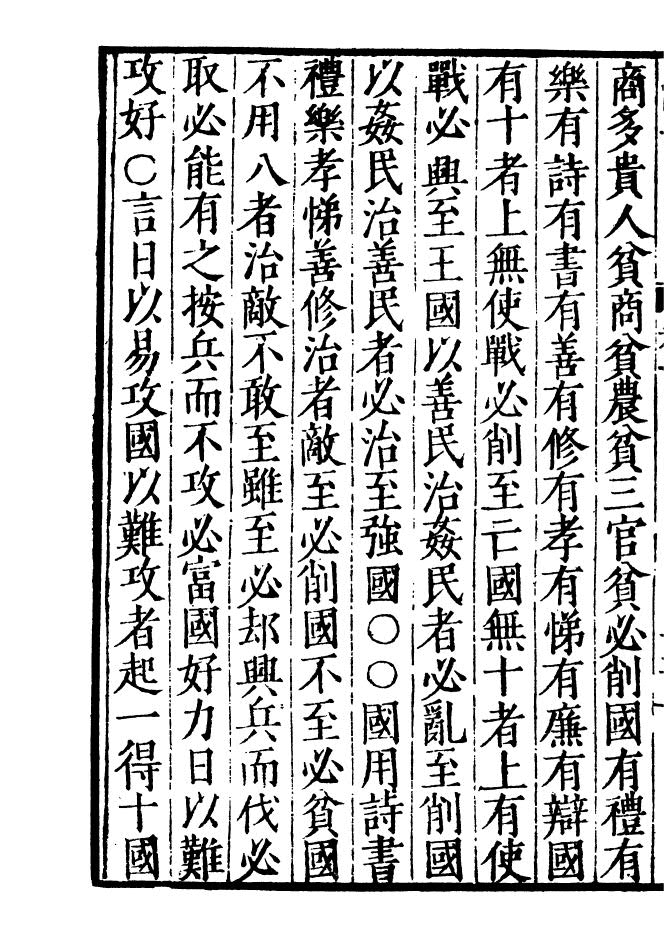 商多貴人貧商貧農貧三官貧必削國有禮有
樂有詩有書有善有修有孝有悌有廉有辯國
有十者上無使戰必削至亡國無十者上有使
戰必興至王國以善民治姦民者必亂至削國
以姦民治善民者必治至強國○○國用詩書
禮樂孝悌善修治者敵至必削國不至必貧國
不用八者治敵不敢至雖至必却興兵而伐必
取必能有之按兵而不攻必富國好力日以難
攻好○言日以易攻國以難攻者起一得十國